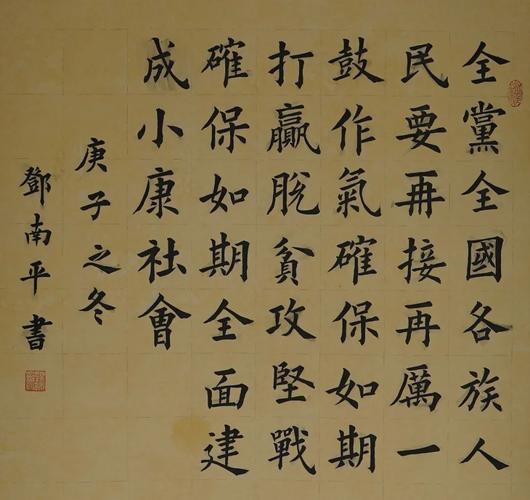 全黨全國各族人
民要再接再厲一
鼓作氣確保如期
打贏脫貧攻堅戰
確保如期全面建
成小康社會
庚子之冬
鄧南平書